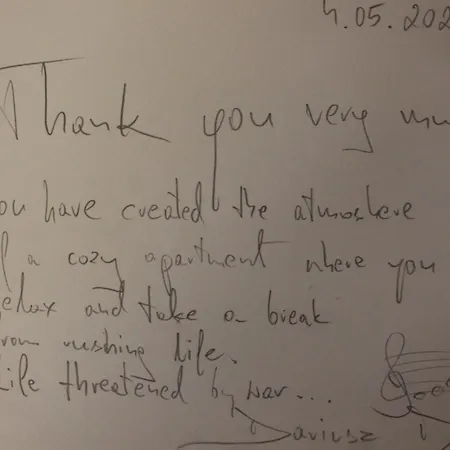 4.05.202
Thank you very mu
ou have created the atmoshere
f a cozy apartment where you
elax and take a break
rom rushing life.
Life threatened by war...
Dariusz